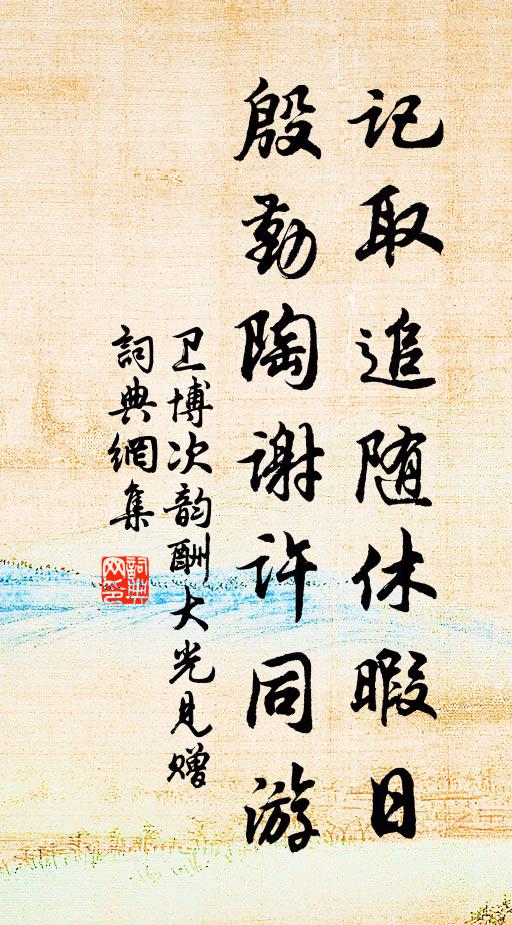 记取追随休暇日
殷勤陶谢许同游
卫博次韵酬大光见赠
詞典網集
詞典
网